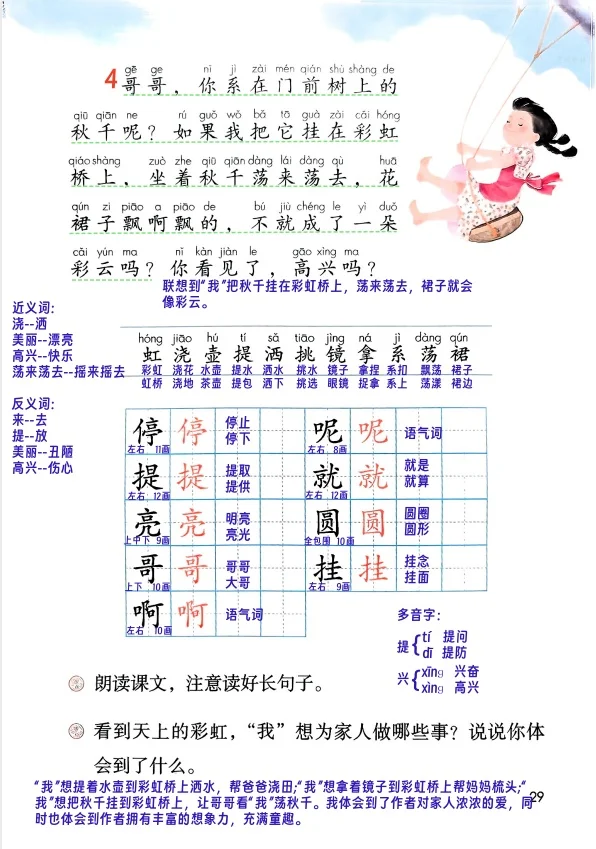 gē ge nǐ jì zài mén qián shù shàng de
4 哥哥，你系在门前树上的
qiū qiān ne rú guǒ wǒ bǎ tā guà zài cǎi hóng
秋千呢？如果我把它挂在彩虹
qiáo shàng zuò zhe qiū qiān dàng lái dàng qù huā
桥上，坐着秋千荡来荡去，花
qún zi piāo a piāo de bú jiù chéng le yì duǒ
裙子飘啊飘的，不就成了一朵
cǎi yún ma nǐ kàn jiàn le gāo xìng ma
彩云吗？你看见了，高兴吗？
联想到“我”把秋千挂在彩虹桥上，荡来荡去，裙子就会
像彩云。
近义词：
浇--洒
美丽--漂亮
高兴--快乐
荡来荡去--摇来摇去
反义词：
来--去
提--放
美丽--丑陋
高兴--伤心
hóng jiāo hú tí sǎ tiāo jìng ná jì dàng qún
虹 浇 壶 提 洒 挑 镜 拿 系 荡 裙
彩虹 浇花 水壶 提水 洒水 挑水 镜子 拿捏 系扣 飘荡 裙子
虹桥 浇地 茶壶 提包 洒下 挑选 眼镜 捉拿 系上 荡漾 裙边
停 停 停止 停下
左右 11画
呢 呢 语气词
左右 8画
提 提 提取 提供
左右 12画
就 就 就是 就算
左右 12画
亮 亮 明亮 亮光
上中下 9画
圆 圆 圆圈 圆形
全包围 10画
哥 哥 哥哥 大哥
上下 10画
挂 挂 挂念 挂面
左右 9画
啊 啊 语气词
左右 10画
多音字：
提 { tí 提问
dī 提防
兴 { xīng 兴奋
xìng 高兴
朗读课文，注意读好长句子。
看到天上的彩虹，“我”想为家人做哪些事？说说你体
会到了什么。
“我”想提着水壶到彩虹桥上洒水，帮爸爸浇田;“我”想拿着镜子到彩虹桥上帮妈妈梳头;“
我”想把秋千挂到彩虹桥上，让哥哥看“我”荡秋千。我体会到了作者对家人浓浓的爱，同
时也体会到作者拥有丰富的想象力，充满童趣。
29